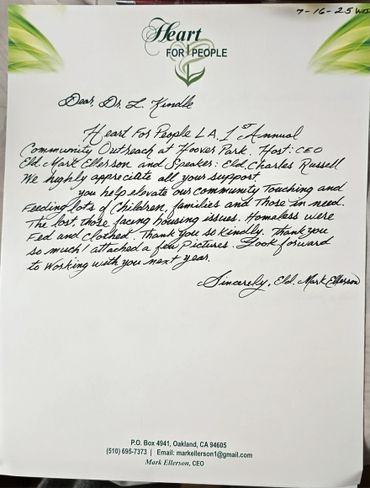 7-16-25
Heart
FOR PEOPLE
Dear, Dr. L. Kindle
Heart For People L.A. 1st Annual
Community Outreach at Hoover Park. Host: CEO
Eld. Mark Ellerson and Speaker: Eld. Charles Russell
We highly appreciate all your support
you help elevate our community Touching and
Feeding lots of Children, families and Those In need.
The lost, those facing housing issues. Homless were
Fed and Clothed. Thank you so kindly. Thank you
so much! attached a few Pictures. Look forward
to Working with you next year.
Sincerely, Eld. Mark Ellerson
P.O. Box 4941, Oakland, CA 94605
(510) 695-7373 | Email: markellerson1@gmail.com
Mark Ellerson, CEO